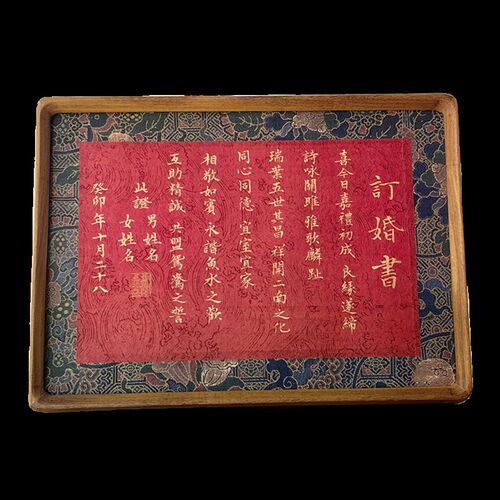 訂婚書
喜今日嘉禮初成 良緣遂締
詩咏關雎 雅歌麟趾
瑞葉五世其昌 祥開二南之化
同心同德 宜室宜家
相敬如賓 永諧魚水之歡
互助精誠 共盟鴛鴦之誓
此證 男姓名
女姓名
癸卯年十月二十八